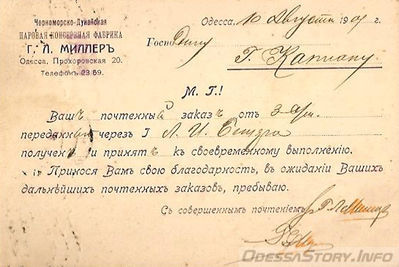 Черноморско-Дунайская
ПАРОВАЯ КОНСЕРВНАЯ ФАБРИКА
Г. Л. МИЛЛЕРЪ
Одесса, Прохоровская 20.
Телефонъ 23 69.
Одесса, 10 Августа 190
Господину
Г. Каплану
М. Г.!
Вашъ почтенный заказъ отъ 3
переданный черезъ Г Л. И.
полученъ и принятъ къ своевременному выполненію.
Принося Вамъ свою благодарность, въ ожиданіи Вашихъ
дальнѣйшихъ почтенныхъ заказовъ, пребываю.
Съ совершеннымъ почтеніемъ
OdessaStory.Info